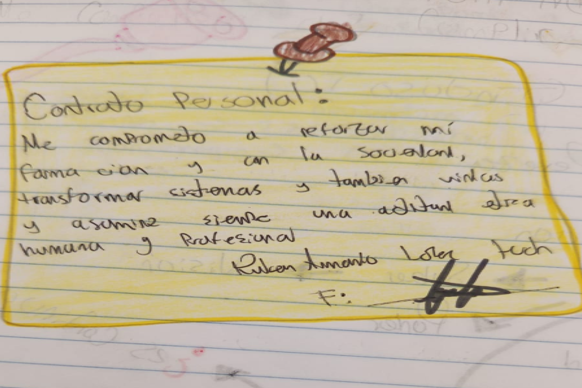 Contrato Personal:
Me comprometo a reforzar mi
formacion y con la sociedad,
transformar sistemas y tambien vidas
y asumire siempre una actitud etica
humana y Profesional
Ruben Armando Lopez
F: